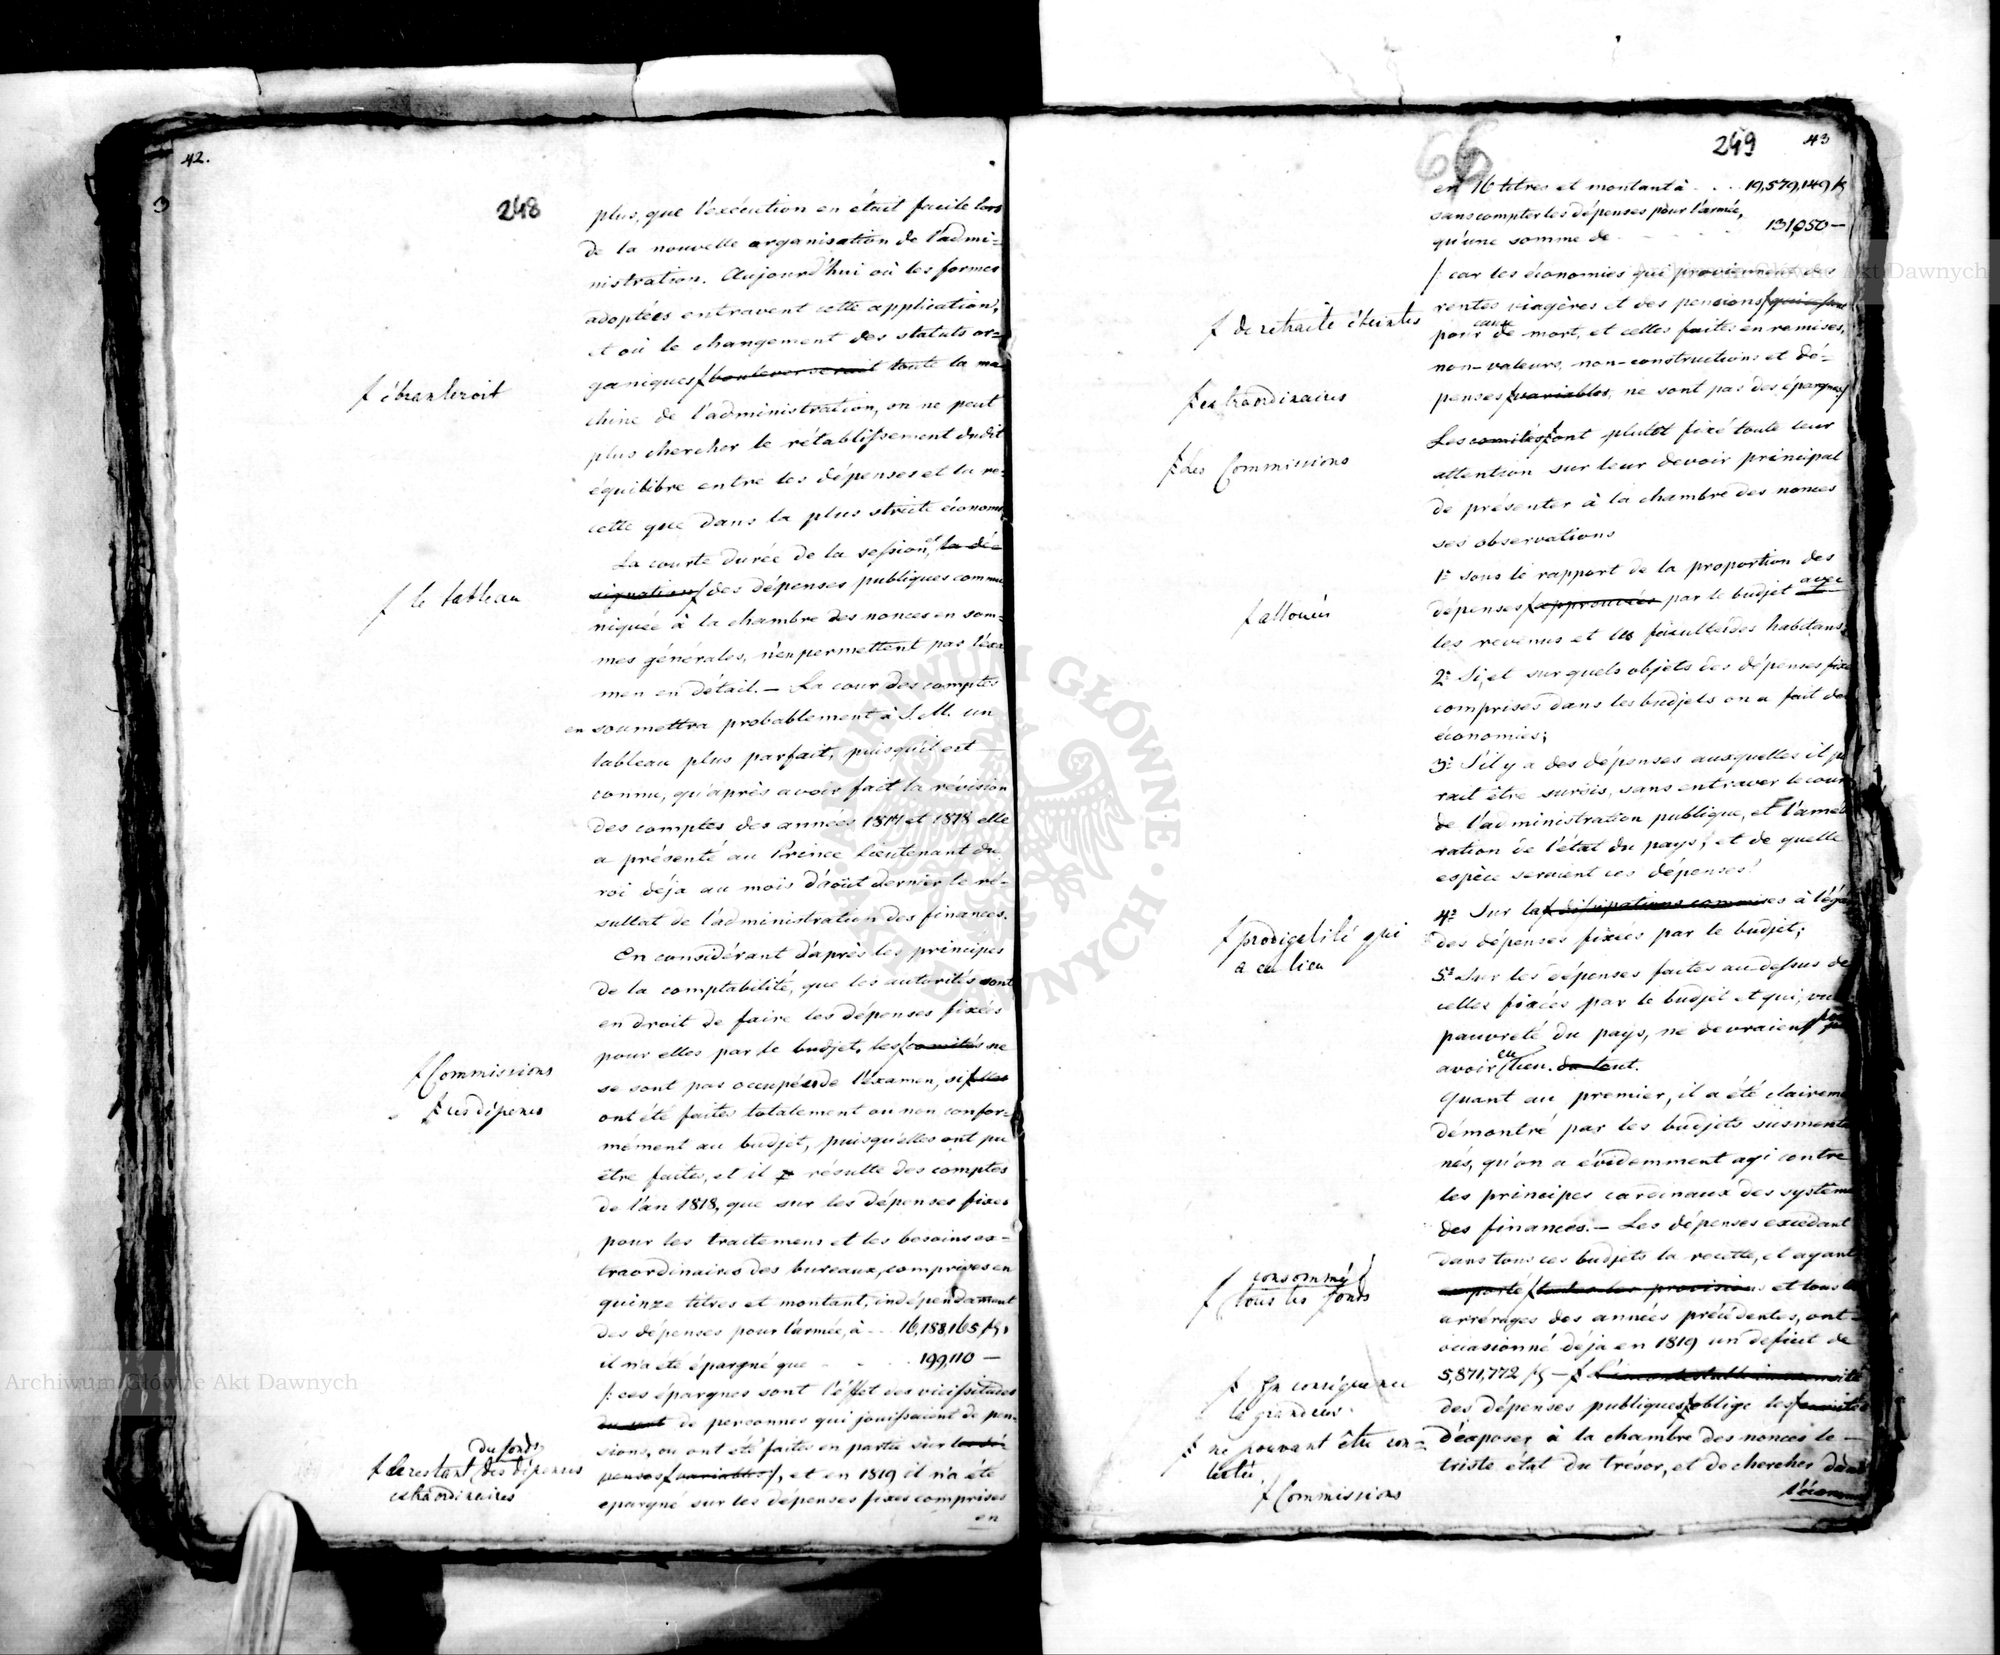 42.
248
plus, que l'exécution en était facile lors
de la nouvelle organisation de l'admi=
nistration. Aujourd'hui où les formes
adoptées entravent cette application,
et où le changement des statuts or=
ganiques ƒ bouleverserait toute la ma=
ƒ ébranleroit
chine de l'administration, on ne peut
plus chercher le rétablissement dudit
équilibre entre les dépenses et la re=
cette que dans la plus stricte économ
La courte durée de la session, et la dé=
signation ƒ des dépenses publiques commu
ƒ le tableau
niquée à la chambre des nonces en som=
mes générales, n'en permettent pas l'exa
men en détail. — La cour des comptes
en soumettra probablement à S. M. un
tableau plus parfait, puisqu'il est —
connu, qu'après avoir fait la révision
des comptes des années 1817 et 1818 elle
a présenté au Prince Lieutenant du
roi déja au mois d'août dernier le ré=
sultat de l'administration des finances.
En considérant d'après les principes
de la comptabilité, que les autorités sont
en droit de faire les dépenses fixées
pour elles par le budjet, les ƒ comités ne
ƒ Commissions
se sont pas occupées de l'examen, si ƒ elles
ƒ les dépenses
ont été faites totalement ou non confor=
mément au budjet, puisqu'elles ont pu
être faites, et il résulte des comptes
de l'an 1818, que sur les dépenses fixes
pour les traitemens et les besoins ex=
traordinaires des bureaux, comprises en
quinze titres et montant, indépendamment
des dépenses pour l'armée, à ... 16,188,165 fl.
il n'a été épargné que - . . 199,110 —
/: ces épargnes sont l'éffet des vicissitudes
ou sont de personnes qui jouissaient de pen=
sions, ou ont été faites en partie sur les dé=
penses ƒ variables :/, et en 1819 il n'a été
ƒ le restant du fonds des dépenses
extraordinaires
épargné sur les dépenses fixes comprises
en
66
249
43
en 16 titres et montant à . . . 19,579,149 fl
sans compter les dépenses pour l'armée,
qu'une somme de - - - 131,050 —
/: car les économies qui proviennent des
rentes viagères et des pensions ƒ
ƒ de retraite éteintes
pour cause de mort, et celles faites en remises,
non-valeurs, non-constructions et dé=
penses ƒ variables, ne sont pas des épargnes :/
ƒ extraordinaires
Les comités ƒ ont plutôt fixé toute leur
ƒ Les Commissions
attention sur leur devoir principal
de présenter à la chambre des nonces
ses observations
1º sous le rapport de la proportion des
dépenses ƒ approuvées par le budjet avec
ƒ allouées
les revenus et les facultés des habitans;
2º Si, et sur quels objets des dépenses fixe
comprises dans les budjets on a fait des
économies;
3º S'il y a des dépenses auxquelles il p
rait être sursis, sans entraver le cour
de l'administration publique, et l'amél
ration de l'état du pays; et de quelle
espèce seraient ces dépenses!
4º Sur la ƒ dissipations commises à l'éga
ƒ prodigalité qui
a eu lieu
des dépenses fixées par le budjet;
5º Sur les dépenses faites au-dessus de
celles fixées par le budjet et qui, vu
pauvreté du pays, ne devraient pas
avoir eu lieu du tout.
Quant au premier, il a été clairem
démontré par les budjets susmenti
nés, qu'on a évidemment agi contre
les principes cardinaux des système
des finances. — Les dépenses excedant
dans tous ces budjets la recette, et ayant
emporté ƒ toutes les provisions et tous les
ƒ consommé
ƒ tous les fonds
arrérages des années précédentes, ont
occasionné déja en 1819 un deficit de
5,871,772 fl — ƒ L'incontestable immensité
ƒ En conséquence
la grandeur
des dépenses publiques ƒ oblige les ƒ comités
ƒ ne pouvant être con=
testée
d'exposer à la chambre des nonces le —
triste état du trésor, et de chercher dans
ƒ Commissions
l'économ